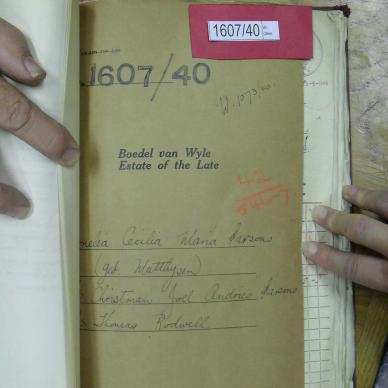 1607/40
1607/40
W. 1073/40.
Boedel van Wyle
Estate of the Late
Cecilia Maria Parsons
(geb. Matthysen)
Christman Joel Andries Parsons
Thomas Rodwell